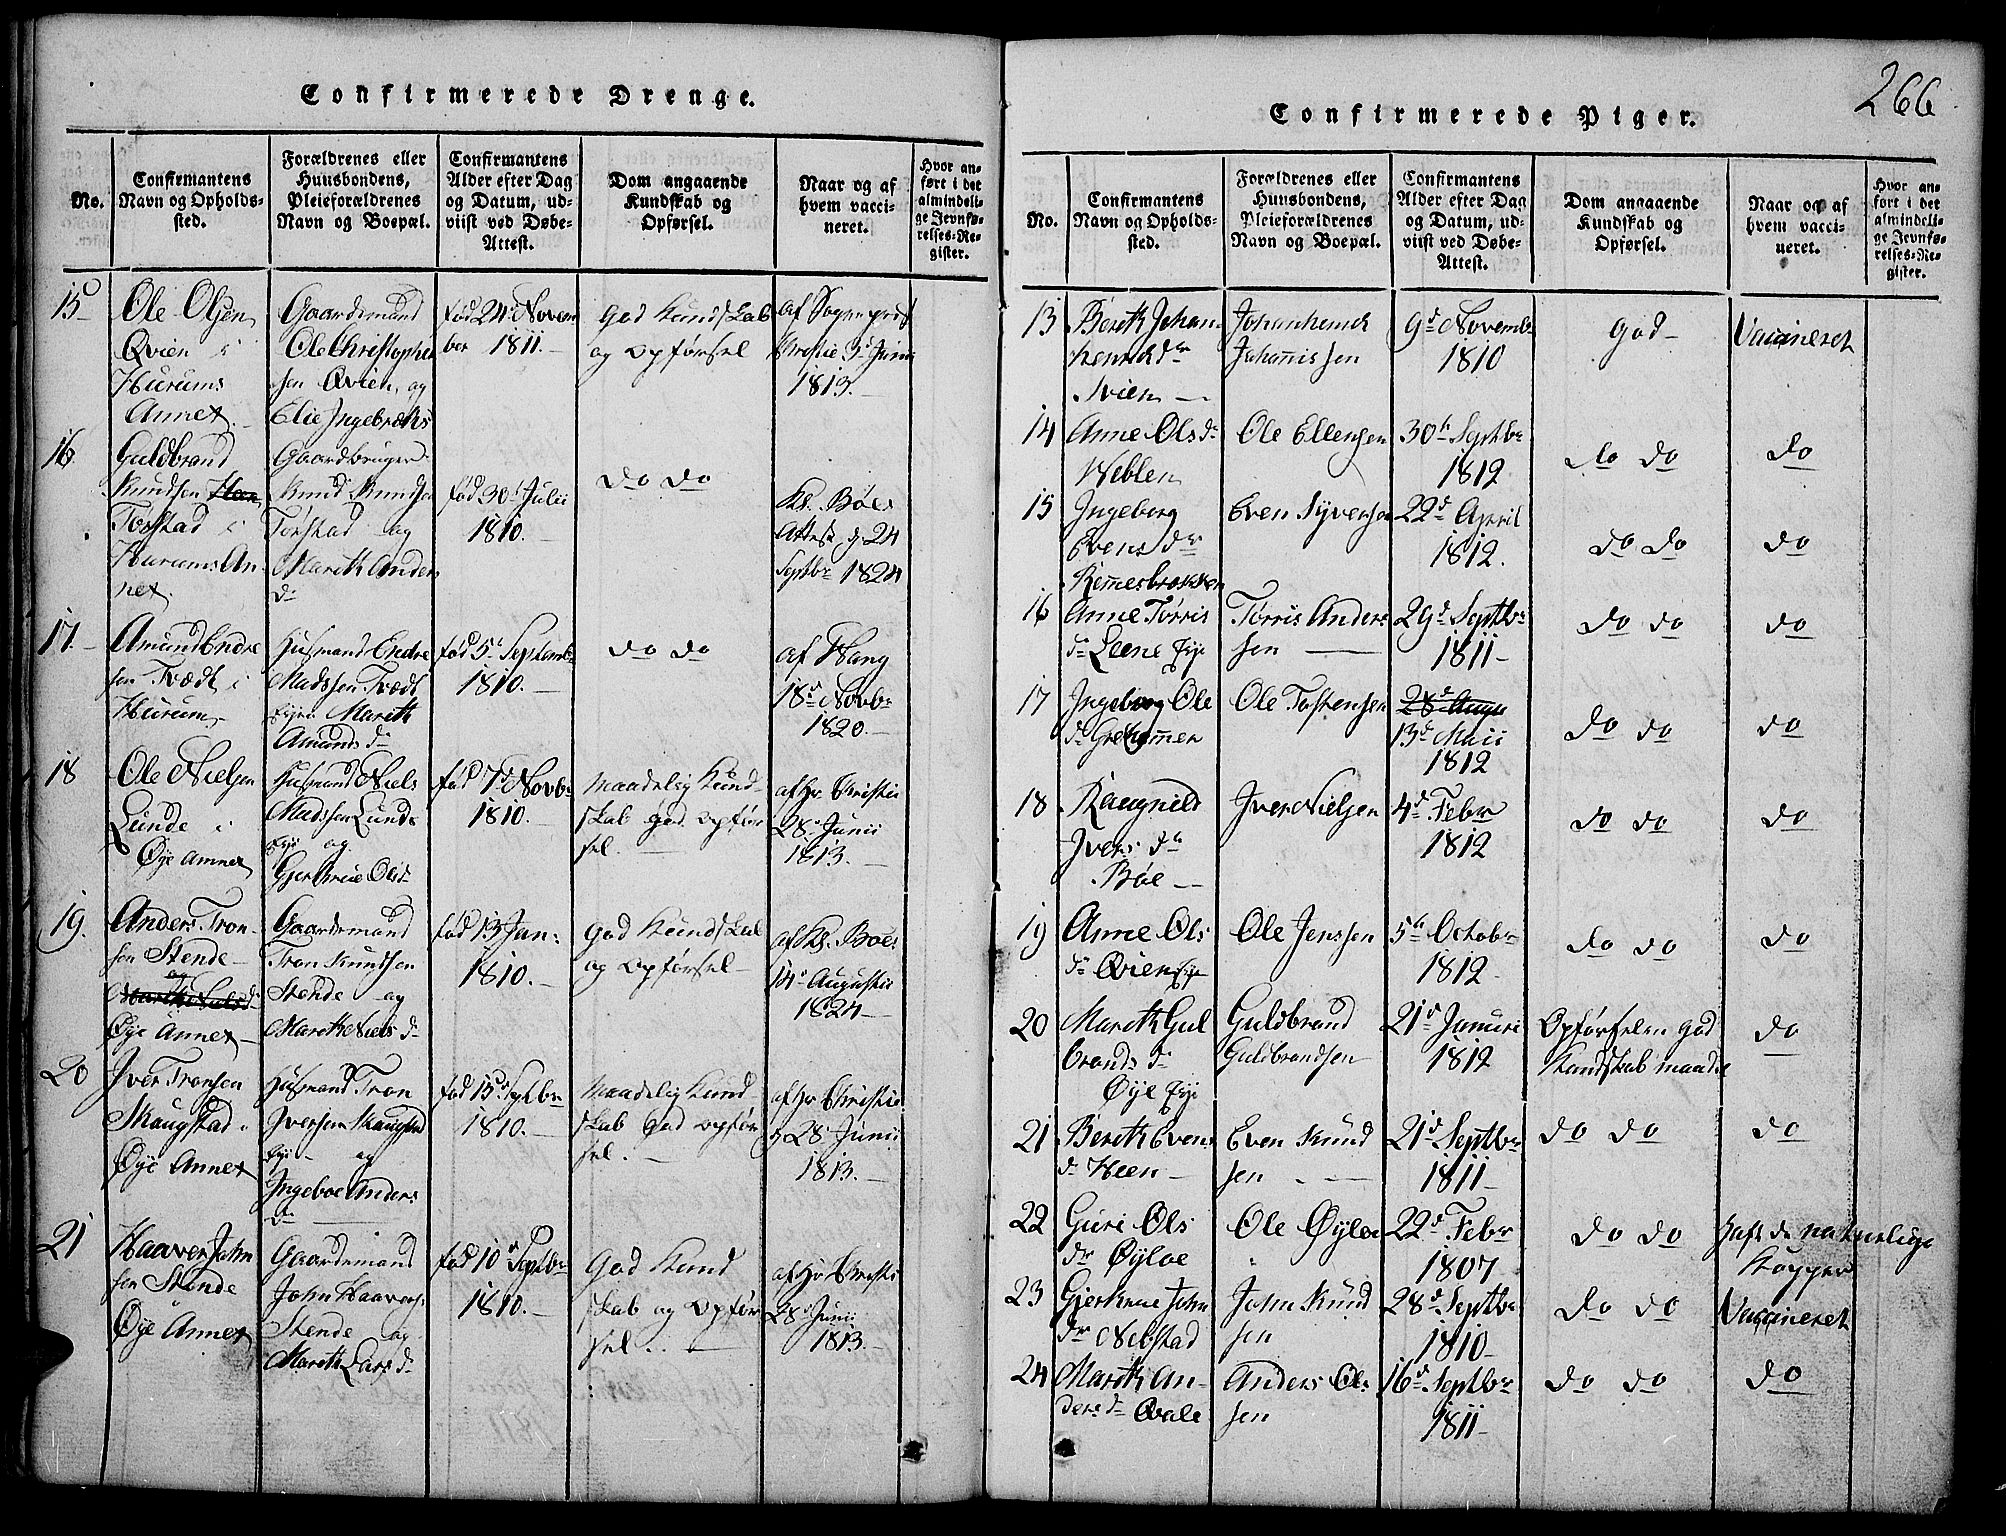 Confirmerede Drenge.
No.
Confirmantens
Navn og Opholds-
sted.
Forældrenes eller
Huusbondens,
Pleieforældrenes
Navn og Boepæl.
Confirmantens
Alder efter Dag
og Datum, ud-
viist ved Døbe-
Attest.
Dom angaaende
Kundskab og
Opførsel.
Naar og af
hvem vacci-
neret.
Hvor an-
ført i det
almindeli-
ge Jevnfø-
relses-Re-
gister.
15
Ole Olsen
Qvien i
Hurums
Annex.
Gaardmand
Ole Christopher
sen Qvien, og
Elie Ingebrekts
fød 24d Novem
ber 1811.
God Kundskab
og Opførsel
af Sognepræst
Christie 3d Junii
1813.
16
Guldbrand
Knudsen
Torstad i
Hurums An-
nex.
Gaardbruger
Knud Knudsen
Torstad og
Marith Anders
dr
fød 30d Julii
1810.
do do
Kl. Bøes
Attest d. 24
Septbr 1824
17.
Amund Endre
sen Trædt i
Hurum
Husmand Endre
Madssen Trædt
Eye Marith
Amunds dr
fød 5d Septemb
1810.
do do
af Hang
18d Novbr
1820.
18
Ole Nielsen
Lunde i
Øye Annex
Husmand Niels
Madssen Lunde
Eye og
Gjertrue Olsdr
fød 7d Novbr
1810.
Maadelig Kund-
skab god Opfør
sel.
af Hr Christie
28d Junii
1813.
19.
Anders Tron-
sen Stende
Øye Annex
Gaardmand
Tron Knudsen
Stende og
Marith Niels dr
fød 13 Jan:
1810.
God Kundskab
og Opførsel
af Kl. Bøes
14d Augustii
1824
20
Iver Tronsen
Skaugstad i
Øye Annex
Husmand Tron
Iversen Skaugstad
Eye og
Ingeboe Anders
dr
fød 15d Septbr
1810.
Maadelig Kund
skab God Opfør
sel.
af Hr Christie
d 28d Junii
1813.
21
Haaver John
sen Stende
Øye Annex
Gaardmand
John Haavers:
Stende og
Marith Lars dr
fød 10d Septbr
1810.
God Kund
skab og Opfør
sel.
af Hr Christi
28d Junii
1813.
266
Confirmerede Piger.
No.
Confirmantens
Navn og Opholds-
sted.
Forældrenes eller
Huusbondens,
Pleieforældrenes
Navn og Boepæl.
Confirmantens
Alder efter Dag
og Datum, ud-
viist ved Døbe-
Attest.
Dom angaaende
Kundskab og
Opførsel.
Naar og af
hvem vacci-
neret.
Hvor an-
ført i det
almindeli-
ge Jevnfø-
relses-Re-
gister.
13
Berith Johan
henrich dr
Johanhenrich
Johannissen
9d Novemb
1810
God
Vaccineret
14
Anne Ols dr
Weblen
Ole Ellensen
30te Septbr
1812
do do
do
15
Ingeborg
Evens dr
Remmesbrækken
Even Syversen
22d April
1812.
do do
do
16
Anne Torris
dr Leene Eye
Torris Anders
sen
29d Septbr
1811
do do
do
17
Ingeborg Ole
dr Grihammer
Ole Tostensen
28d Augu
13d Maii
1812
do do
do
18
Raugnild
Ivers dr
Bøe
Iver Nielsen
4d Febr
1812
do do
do
19
Anne Ols
dr Qvien Eye
Ole Jenssen
5te Octobr
1812
do do
do
20
Marith Gul
brands dr
Øye Eye
Guldbrand
Guldbrandsen
21d Januri
1812
Opførselen god
Kundskab maade
do
21
Berith Evens
dr Heen
Even Knud
sen
21d Septbr
1811
do do
do
22
Guri Ols
dr Øyloe
Ole Øyloe
22d Febr
1807
do do
Haft de naturlige
Kopper
23
Gjertrue John
dr Nebstad
John Knud
sen
28d Septbr
1810
do do
Vaccineret
24
Marith An-
ders dr Qvale
Anders Ol
sen
16d Septbr
1811
do do
do